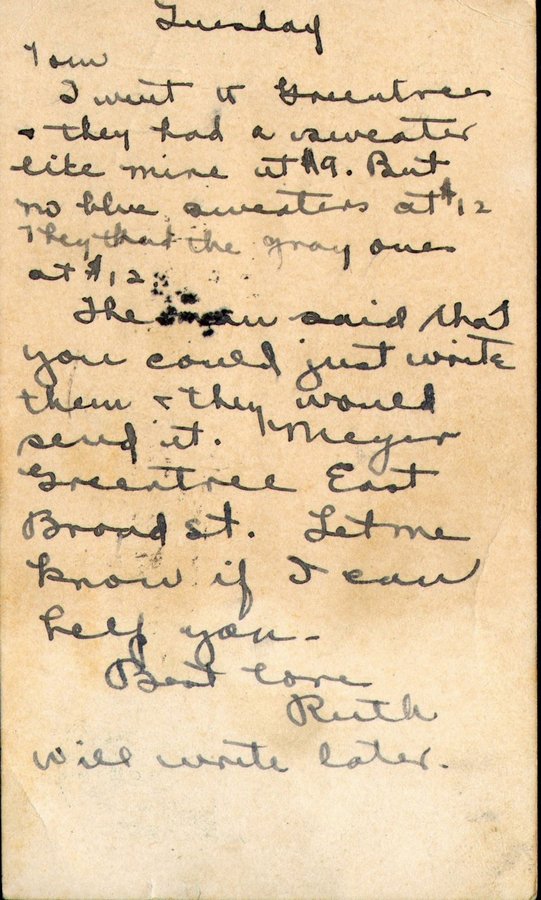 Tuesday
Tom
I went to Greentrees
& they had a sweater
like mine at $9. But
no blue sweaters at $12
They that the gray ones
at $12
The man said that
you could just write
them & they would
send it. "Meyer
Greentree East
Broad St. Let me
know if I can
help you -
Best love
Ruth
will write later.